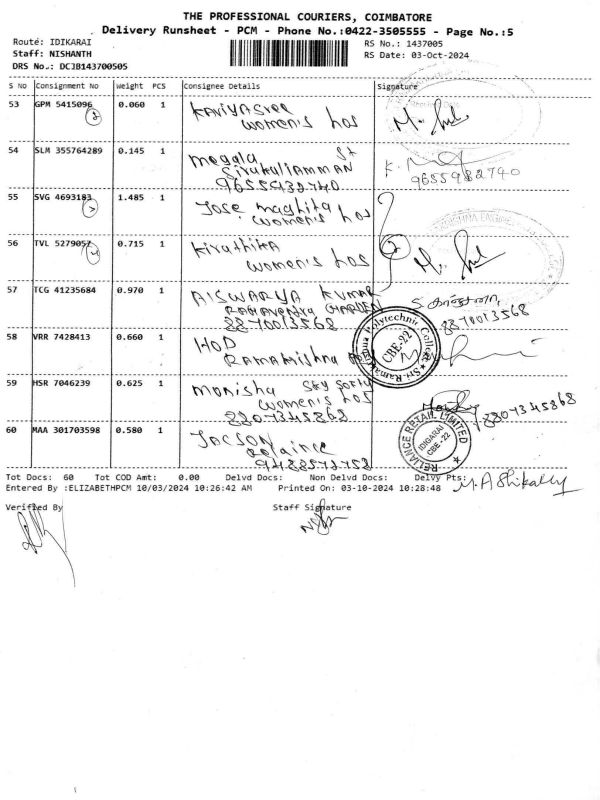 THE PROFESSIONAL COURIERS, COIMBATORE
Delivery Runsheet - PCM - Phone No.:0422-3505555 - Page No.:5
Route: IDIKARAI RS No.: 1437005
Staff: NISHANTH RS Date: 03-Oct-2024
DRS No.: DCJB143700505
S No Consignment No Weight PCS Consignee Details Signature
53 GPM 5415096 0.060 1 Kaviyasree
women's hos
54 SLM 355764289 0.145 1 megala St
Sivakaliamman
9655932740 9655982740
55 SVG 4693183 1.485 1 Jose maghita
women's hos
56 TVL 5279057 0.715 1 Kiruthika
women's hos
57 TCG 41235684 0.970 1 AISWARYA KUMAR
Ramavendra Garden
8870013568 8870013568
58 VRR 7428413 0.660 1 HOD
Ramakrishna
Polytechnic College
CBE-22
59 HSR 7046239 0.625 1 monisha sky softy
women's hos
8807345868 8807345868
60 MAA 301703598 0.580 1 JACSON
relaince
9488572753
RELIANCE RETAIL LIMITED
IDIGARAI
CBE - 22
Tot Docs: 60 Tot COD Amt: 0.00 Delvd Docs: Non Delvd Docs: Delvy Pts:
Entered By :ELIZABETHPCM 10/03/2024 10:26:42 AM Printed On: 03-10-2024 10:28:48
Verified By Staff Signature